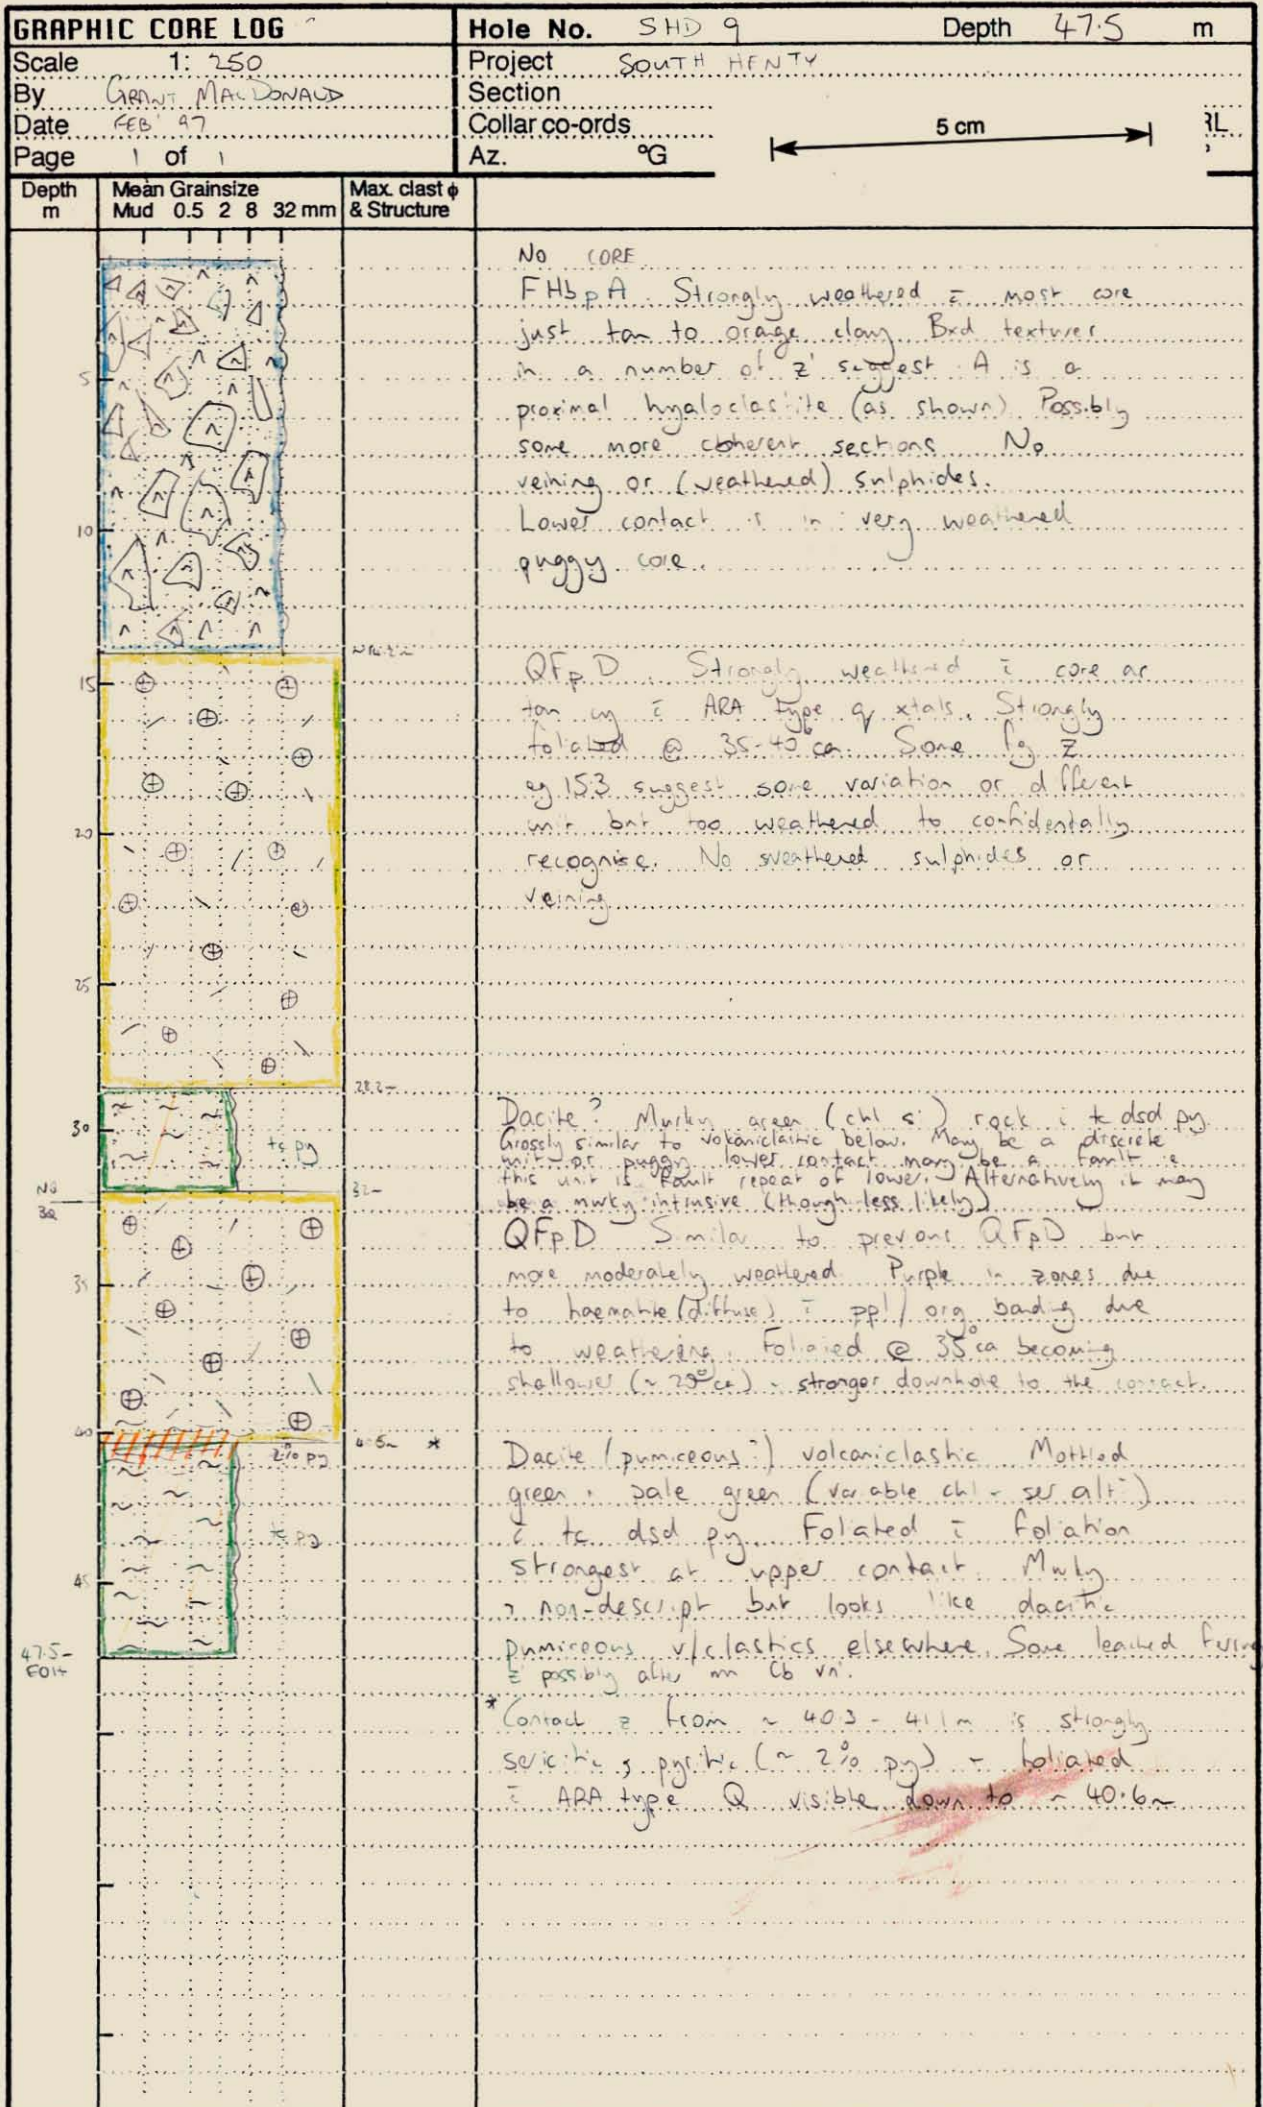 GRAPHIC CORE LOG
Hole No. SHD 9 Depth 47.5 m
Scale 1: 250
Project SOUTH HENTY
By GRANT MACDONALD
Section
Date FEB' 97
Collar co-ords
5 cm
RL
Page 1 of 1
Az. °G
Depth m
Mean Grainsize
Mud 0.5 2 8 32 mm
Max. clast φ & Structure
NO CORE
FHbpA. Strongly weathered c̄ most core
just tan to orange clay Bxd textures
in a number of z' suggest A is a
5
proximal hyaloclastite (as shown) Possibly
some more coherent sections No
veining or (weathered) sulphides.
Lower contact is in very weathered
10
puggy core.
QFpD. Strongly weathered c̄ core as
15
tan cy c̄ ARA type q xtals. Strongly
foliated @ 35-40° ca. Some fg z
eg 15.3 suggest some variation or different
unit but too weathered to confidentally
20
recognise. No sweathered sulphides or
veining
25
28.2-
Dacite? Murky green (chl si) rock c̄ tc dsd py.
30
tc py
Grossly similar to volcaniclastic below. May be a discrete
unit or puggy lower contact may be a fault ie
this unit is fault repeat of lower. Alternatively it may
be a murky intrusive (though less likely)
32-
NQ
QFpD Similar to previous QFpD but
35
more moderately weathered Purple in zones due
to haematite (diffuse) c̄ ppl/org banding due
to weathering. Foliated @ 35° ca becoming
shallower (~20° ca) - stronger downhole to the contact.
40
2% py
*
Dacite (pumiceous?) volcaniclastic Mottled
green - pale green (variable chl - ser alt)
tc py
c̄ tc dsd py Foliated c̄ foliation
strongest at upper contact Murky
45
non-descript but looks like dacitic
47.5-
EOH
pumiceous v/clastics elsewhere. Some leached
z possibly after mn Cb vn'.
* Contact z from ~ 40.3 - 41.1m is strongly
sericitic & pyritic (~ 2% py) - foliated
c̄ ARA type Q visible down to ~ 40.6m